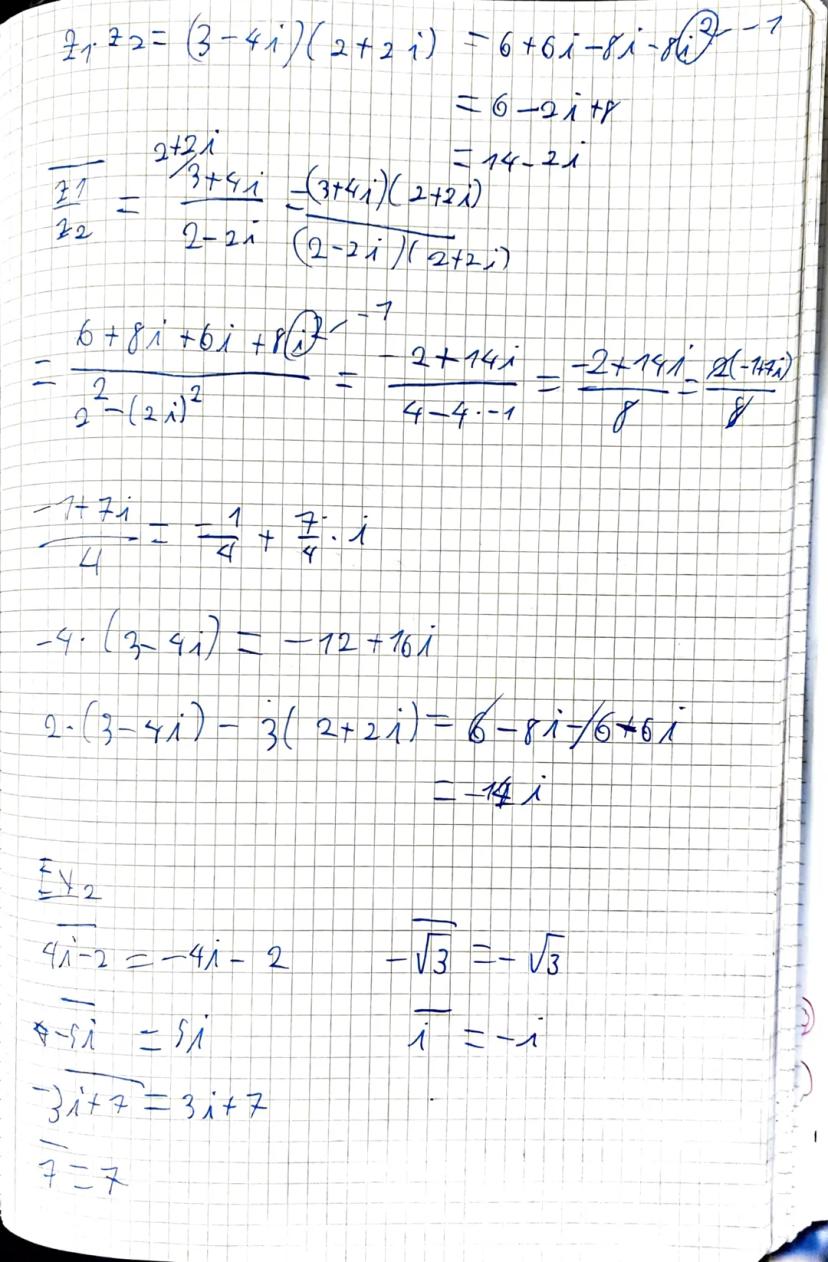 z₁·z₂ = (3-4i)(2+2i) = 6+6i-8i-8i² -1
= 6-2i+8
= 14-2i
2+2i
\overline{\frac{z1}{z2}} = \frac{3+4i}{2-2i} = \frac{(3+4i)(2+2i)}{(2-2i)(2+2i)}
= \frac{6+8i+6i+8i²}{2²-(2i)²} -1 = \frac{-2+14i}{4-4·-1} = \frac{-2+14i}{8} = \frac{2(-1+7i)}{8}
\frac{-1+7i}{4} = -\frac{1}{4} + \frac{7}{4}·i
-4·(3-4i) = -12+16i
2·(3-4i) - 3(2+2i) = 6-8i-6+6i
= -14i
Ex₂
\overline{4i-2} = -4i-2 -\overline{\sqrt{3}} = -\sqrt{3}
\overline{-5i} = 5i \overline{i} = -i
\overline{-3i+7} = 3i+7
\overline{7} = 7